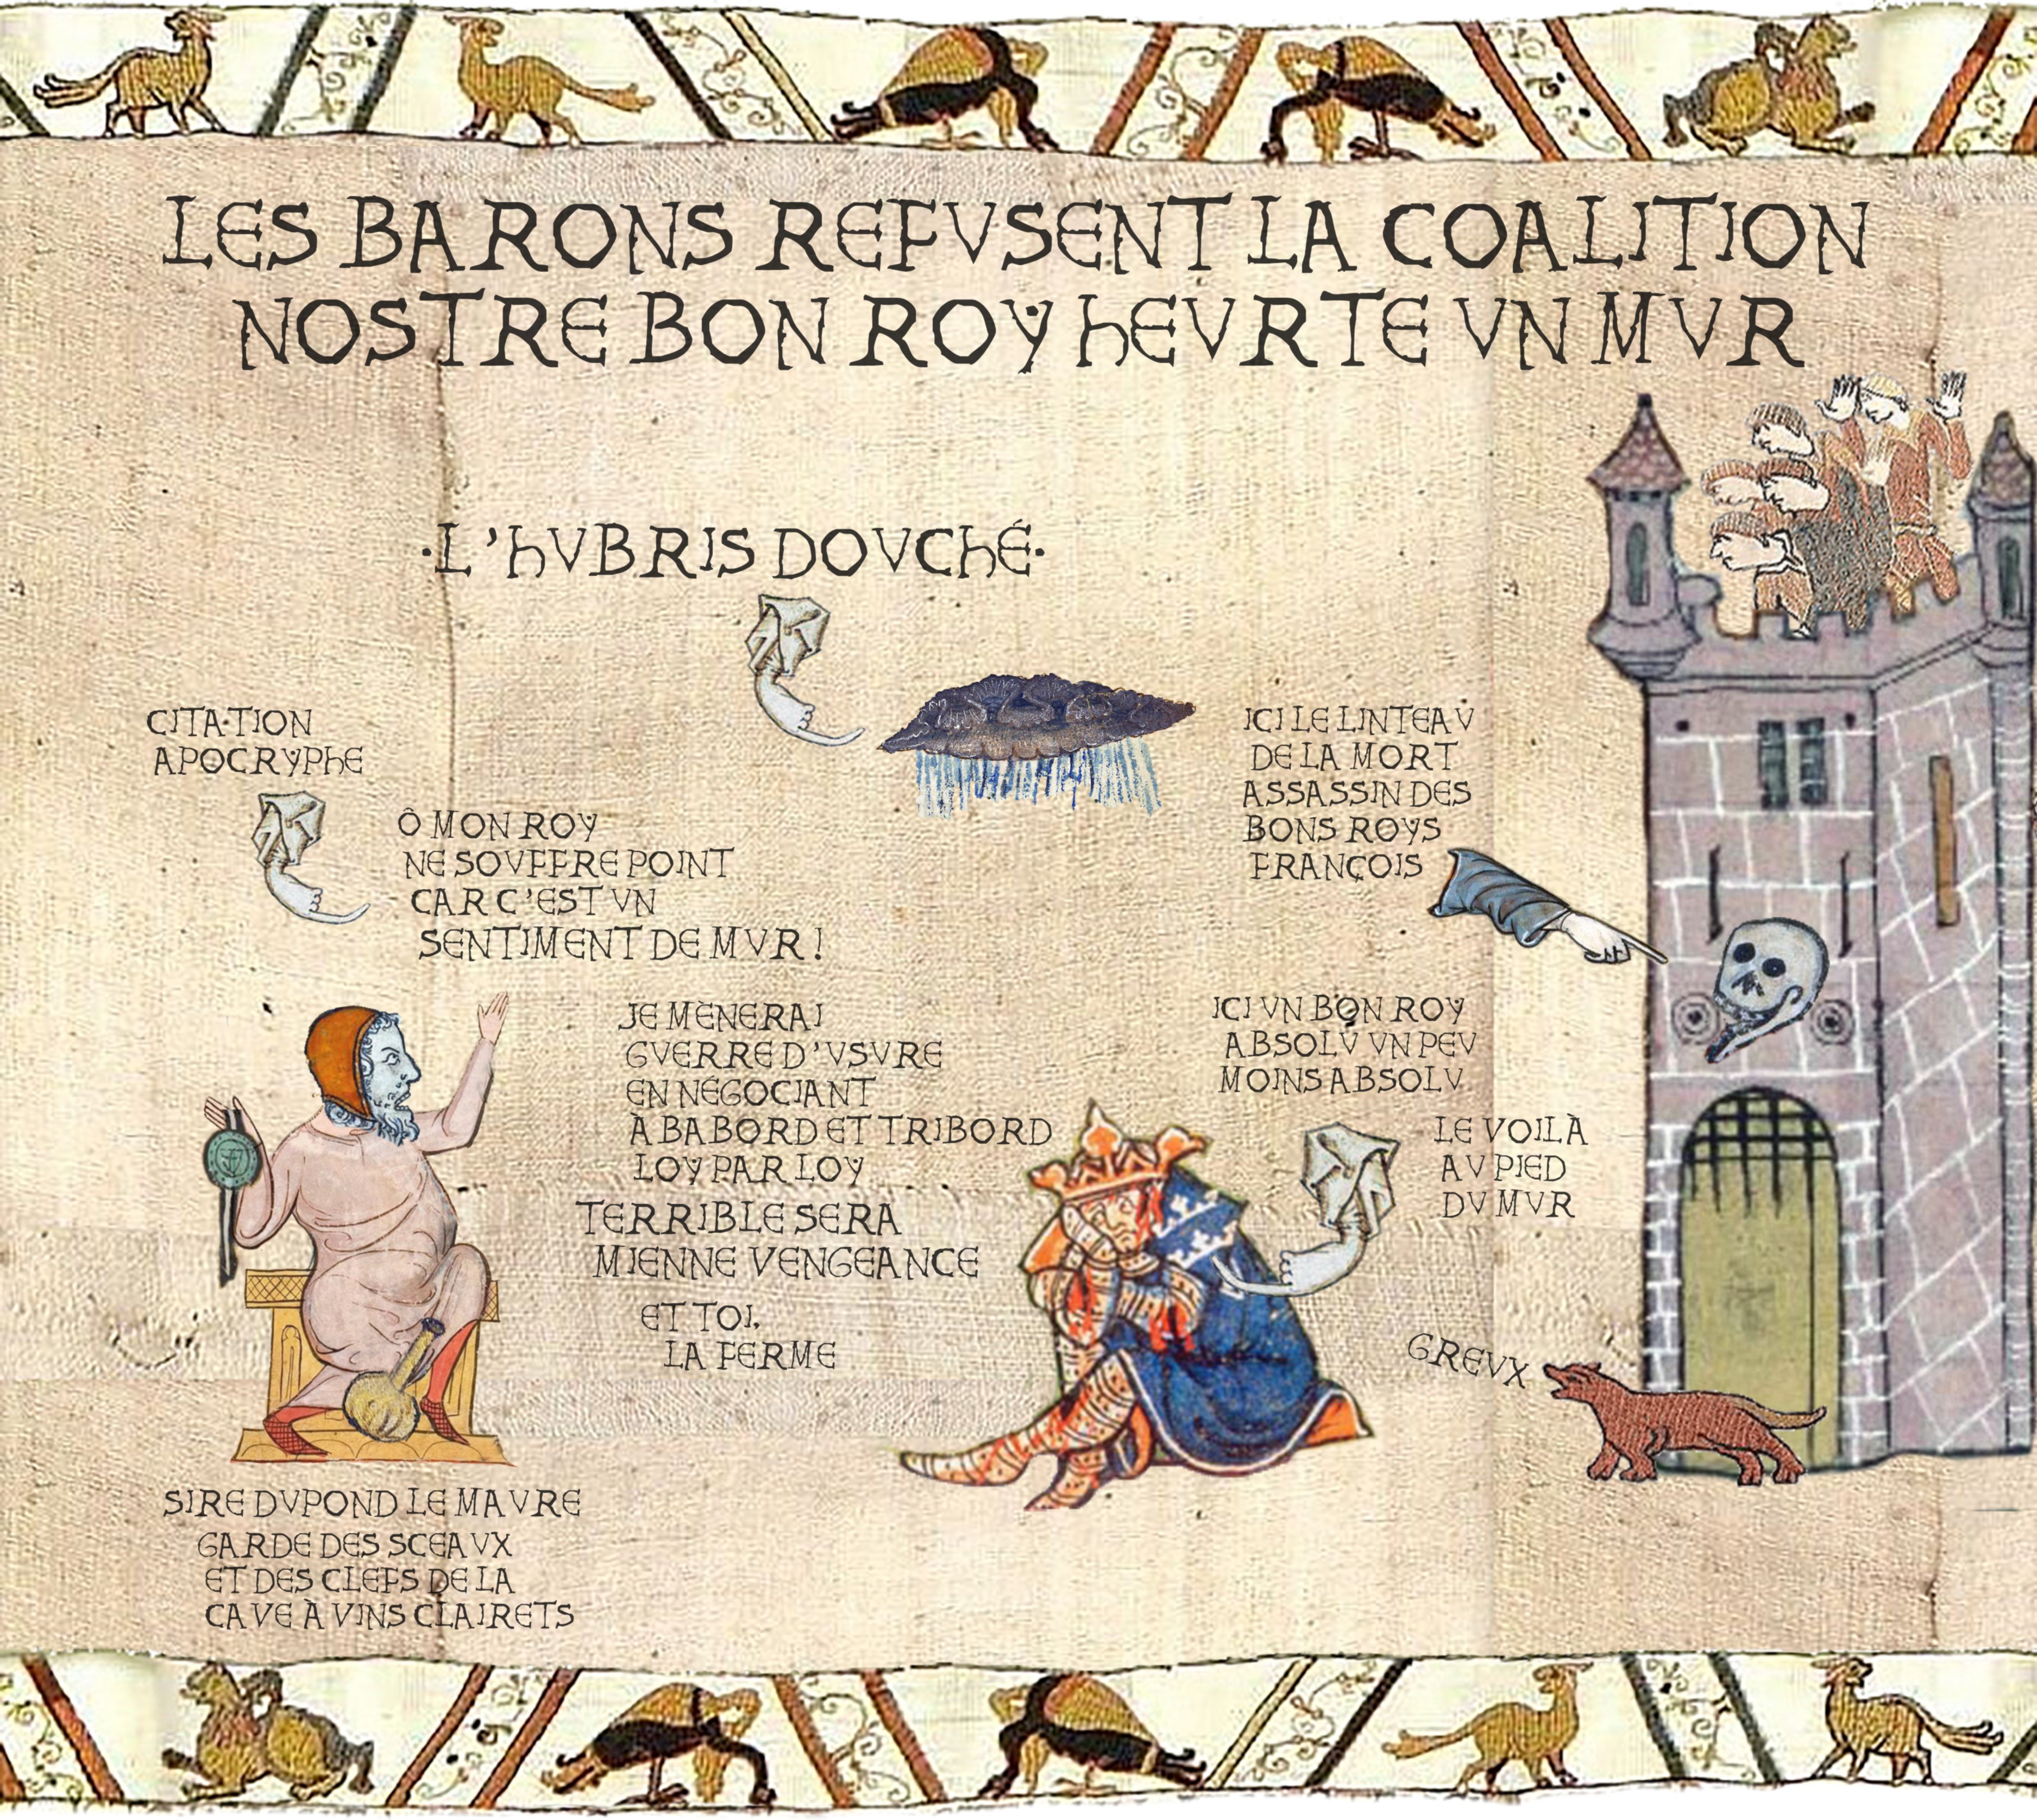 LES BARONS REFVSENT LA COALITION
NOSTRE BON ROY HEVRTE VN MVR
·L'HVBRIS DOVCHÉ·
CITATION
APOCRYPHE
Ô MON ROY
NE SOVFFRE POINT
CAR C'EST VN
SENTIMENT DE MVR !
ICI LE LINTEAV
DE LA MORT
ASSASSIN DES
BONS ROYS
FRANÇOIS
JE MÈNERAI
GVERRE D'VSVRE
EN NÉGOCIANT
À BABORD ET TRIBORD
LOY PAR LOY
TERRIBLE SERA
MIENNE VENGEANCE
ET TOI,
LA FERME
ICI VN BON ROY
ABSOLV VN PEV
MOINS ABSOLV
LE VOILÀ
AV PIED
DV MVR
GREVX
SIRE DVPOND LE MAVRE
GARDE DES SCEAVX
ET DES CLEFS DE LA
CAVE À VINS CLAIRETS